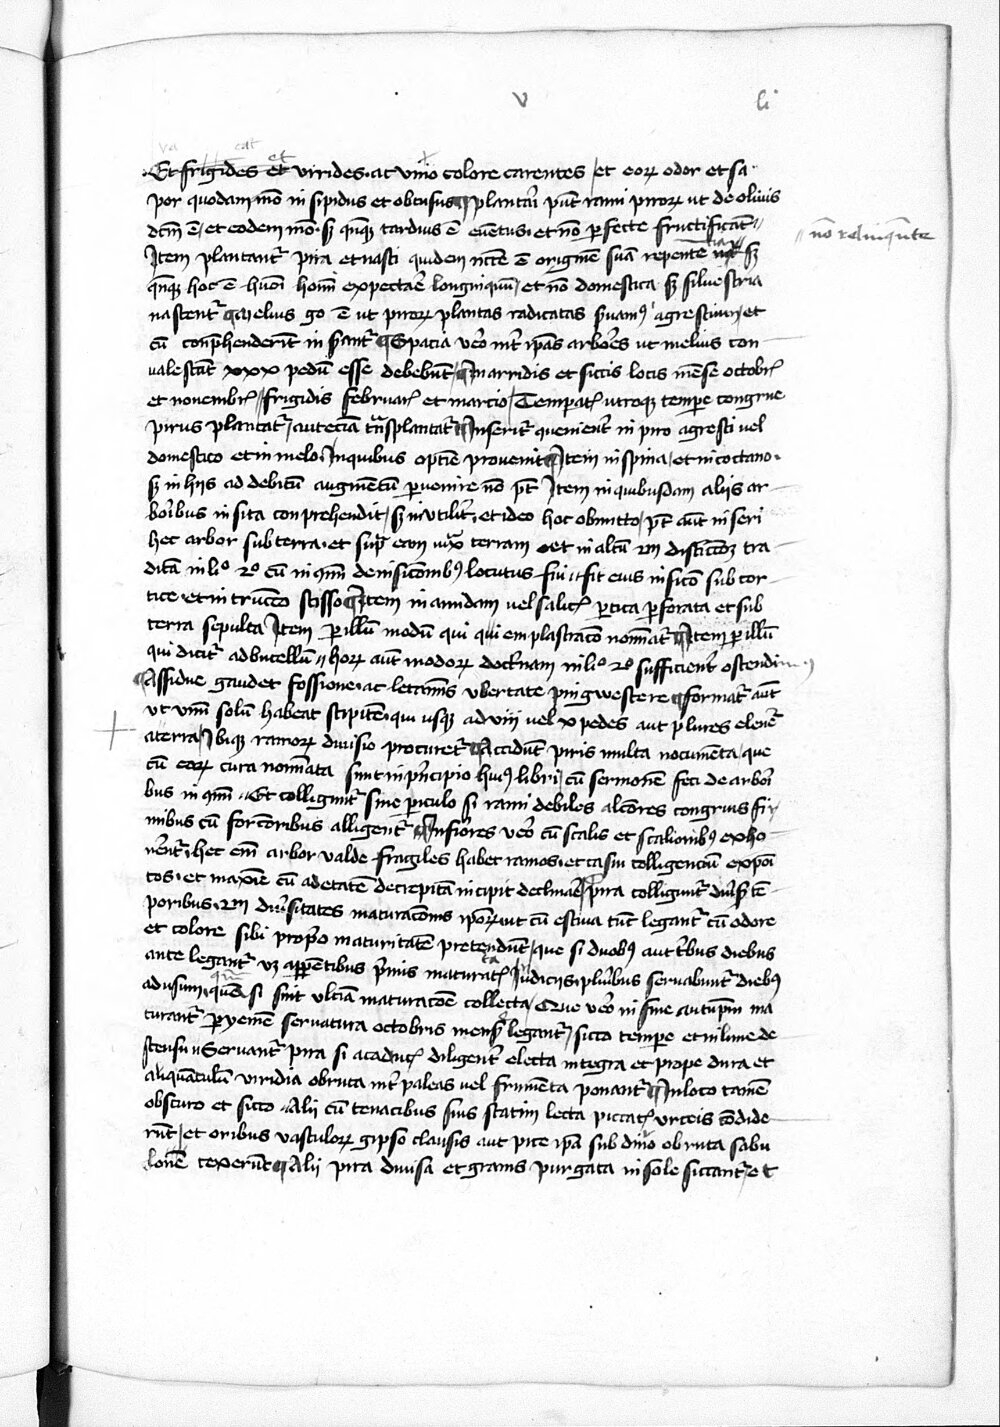 v li
Et frigides et virides ac vivo colore carentes / et eorum odor et sa
por quodammodo insipidus et obtusus ¶ plantari possunt rami pirorum ut de olivis
dictum est / et eodem modo sed quandoque tardius est eventus et non perfecte fructificant
non relinquente
Item plantantur pira et nasci quidem necesse est originem suam repente sed
quandoque hoc est homini expectare longinquum / et non domestica sed silvestria
nascentur ¶ Melius ergo est ut pirorum plantas radicatas servamus agrestium / et
cum comprehenderint inserantur ¶ Spatia vero inter ipsas arbores ut melius con
valescant xxx pedum esse debebunt / ¶ In arridis et siccis locis mense octobris
et novembris / frigidis februarii et martio / Temperatis utroque tempore congrue
pirus plantatur / aut etiam transplantatur ¶ Inseritur convenienter in piro agresti vel
domestico et in melo. In quibus optime provenit ¶ Item in spina / et in coctano.
sed in hiis ad debitum augmentum pervenire non potest Item in quibusdam aliis ar
boribus insita comprehendit / sed inutiliter. et ideo hoc obmitto / potest autem inseri
hec arbor sub terra. et supra eam iuxta terram et in altum secundum distinctionem tra
ditam in libro 2o cum in communi de insicionibus locutus fui // fit eius insicio sub cor
tice et in trunco scisso ¶ Item in arundam vel salicis pertica perforata et sub
terra sepulta Item per illum modum qui emplastracio nominatur ¶ Item per illum
qui dicitur ad bucellum // horum autem modorum doctrinam in libro 2o sufficienter ostendimus
¶ Assidue gaudet fossione. ac letaminis ubertate pingwescere ¶ formatur autem
ut unum solum habeat stipitem. qui usque ad viii vel x pedes aut plures elevetur
a terra / Ibique ramorum divisio procuretur ¶ Accidunt piris multa nocumenta que
cum eorum cura nominata sunt in principio huius libri / cum sermonem feci de arbori
bus in communi. Et colliguntur sine periculo si rami debiles alciores congruis fu
nibus cum forcioribus alligentur ¶ Inferiores vero cum scalis et scalionibus exho
nerentur. hec enim arbor valde fragiles habet ramos. et casui colligencium exposi
tos. et maxime cum ad etatem decrepitam incipit declinare ¶ pira colliguntur diversis tem
poribus. secundum diversitates maturacionis ipsorum. ut cum estiva tunc legantur cum odore
et colore sibi proprio maturitatem pretendunt / que si duobus aut tribus diebus
ante legantur videlicet apparentibus primis maturitatis Indiciis. pluribus servabuntur diebus
ad usum. quam si sint ultima maturacione collecta / Que vero in fine autumpni ma
turantur per yemem servatura octobris mense legantur / sicco tempore et in lune de
scensu // Servantur pira si a caducis diligenter electa integra et prope dura et
aliquantulum viridia obruta inter paleas vel frumenta ponantur ¶ In loco tamen
obscuro et sicco. Alii cum tenacibus suis statim lecta piccatis urceis condide
runt / et oribus vasculorum gipso clausis aut pice ipsa sub divo obruta sabu
lonem texerunt ¶ Alii pira divisa et granis purgata in sole siccantur / et